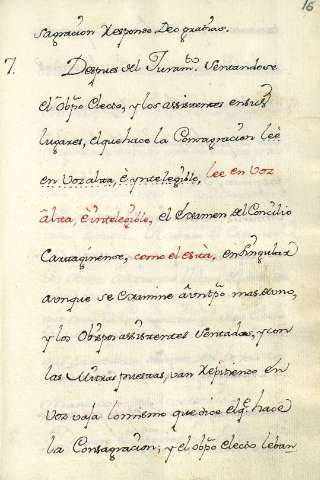 16
sagracion Responde Deo gratias.
7. Despues del Juram.to Sentandose
el obpo Electo, y los assistentes en sus
lugares, el que hace la Consagracion leè
en Voz alta, è yntelegible, lee en Voz
alta, è intelegible, el examen del Concilio
Cartaginense, como el està, en singular
aunque se examine à un tpo mas de uno,
y los Obispos assistentes Sentados, y con
las Mitras puestas, van Repitiendo en
voz vaja lo mismo que dice el q.e hace
la Consagracion; y el obpo Electo leban